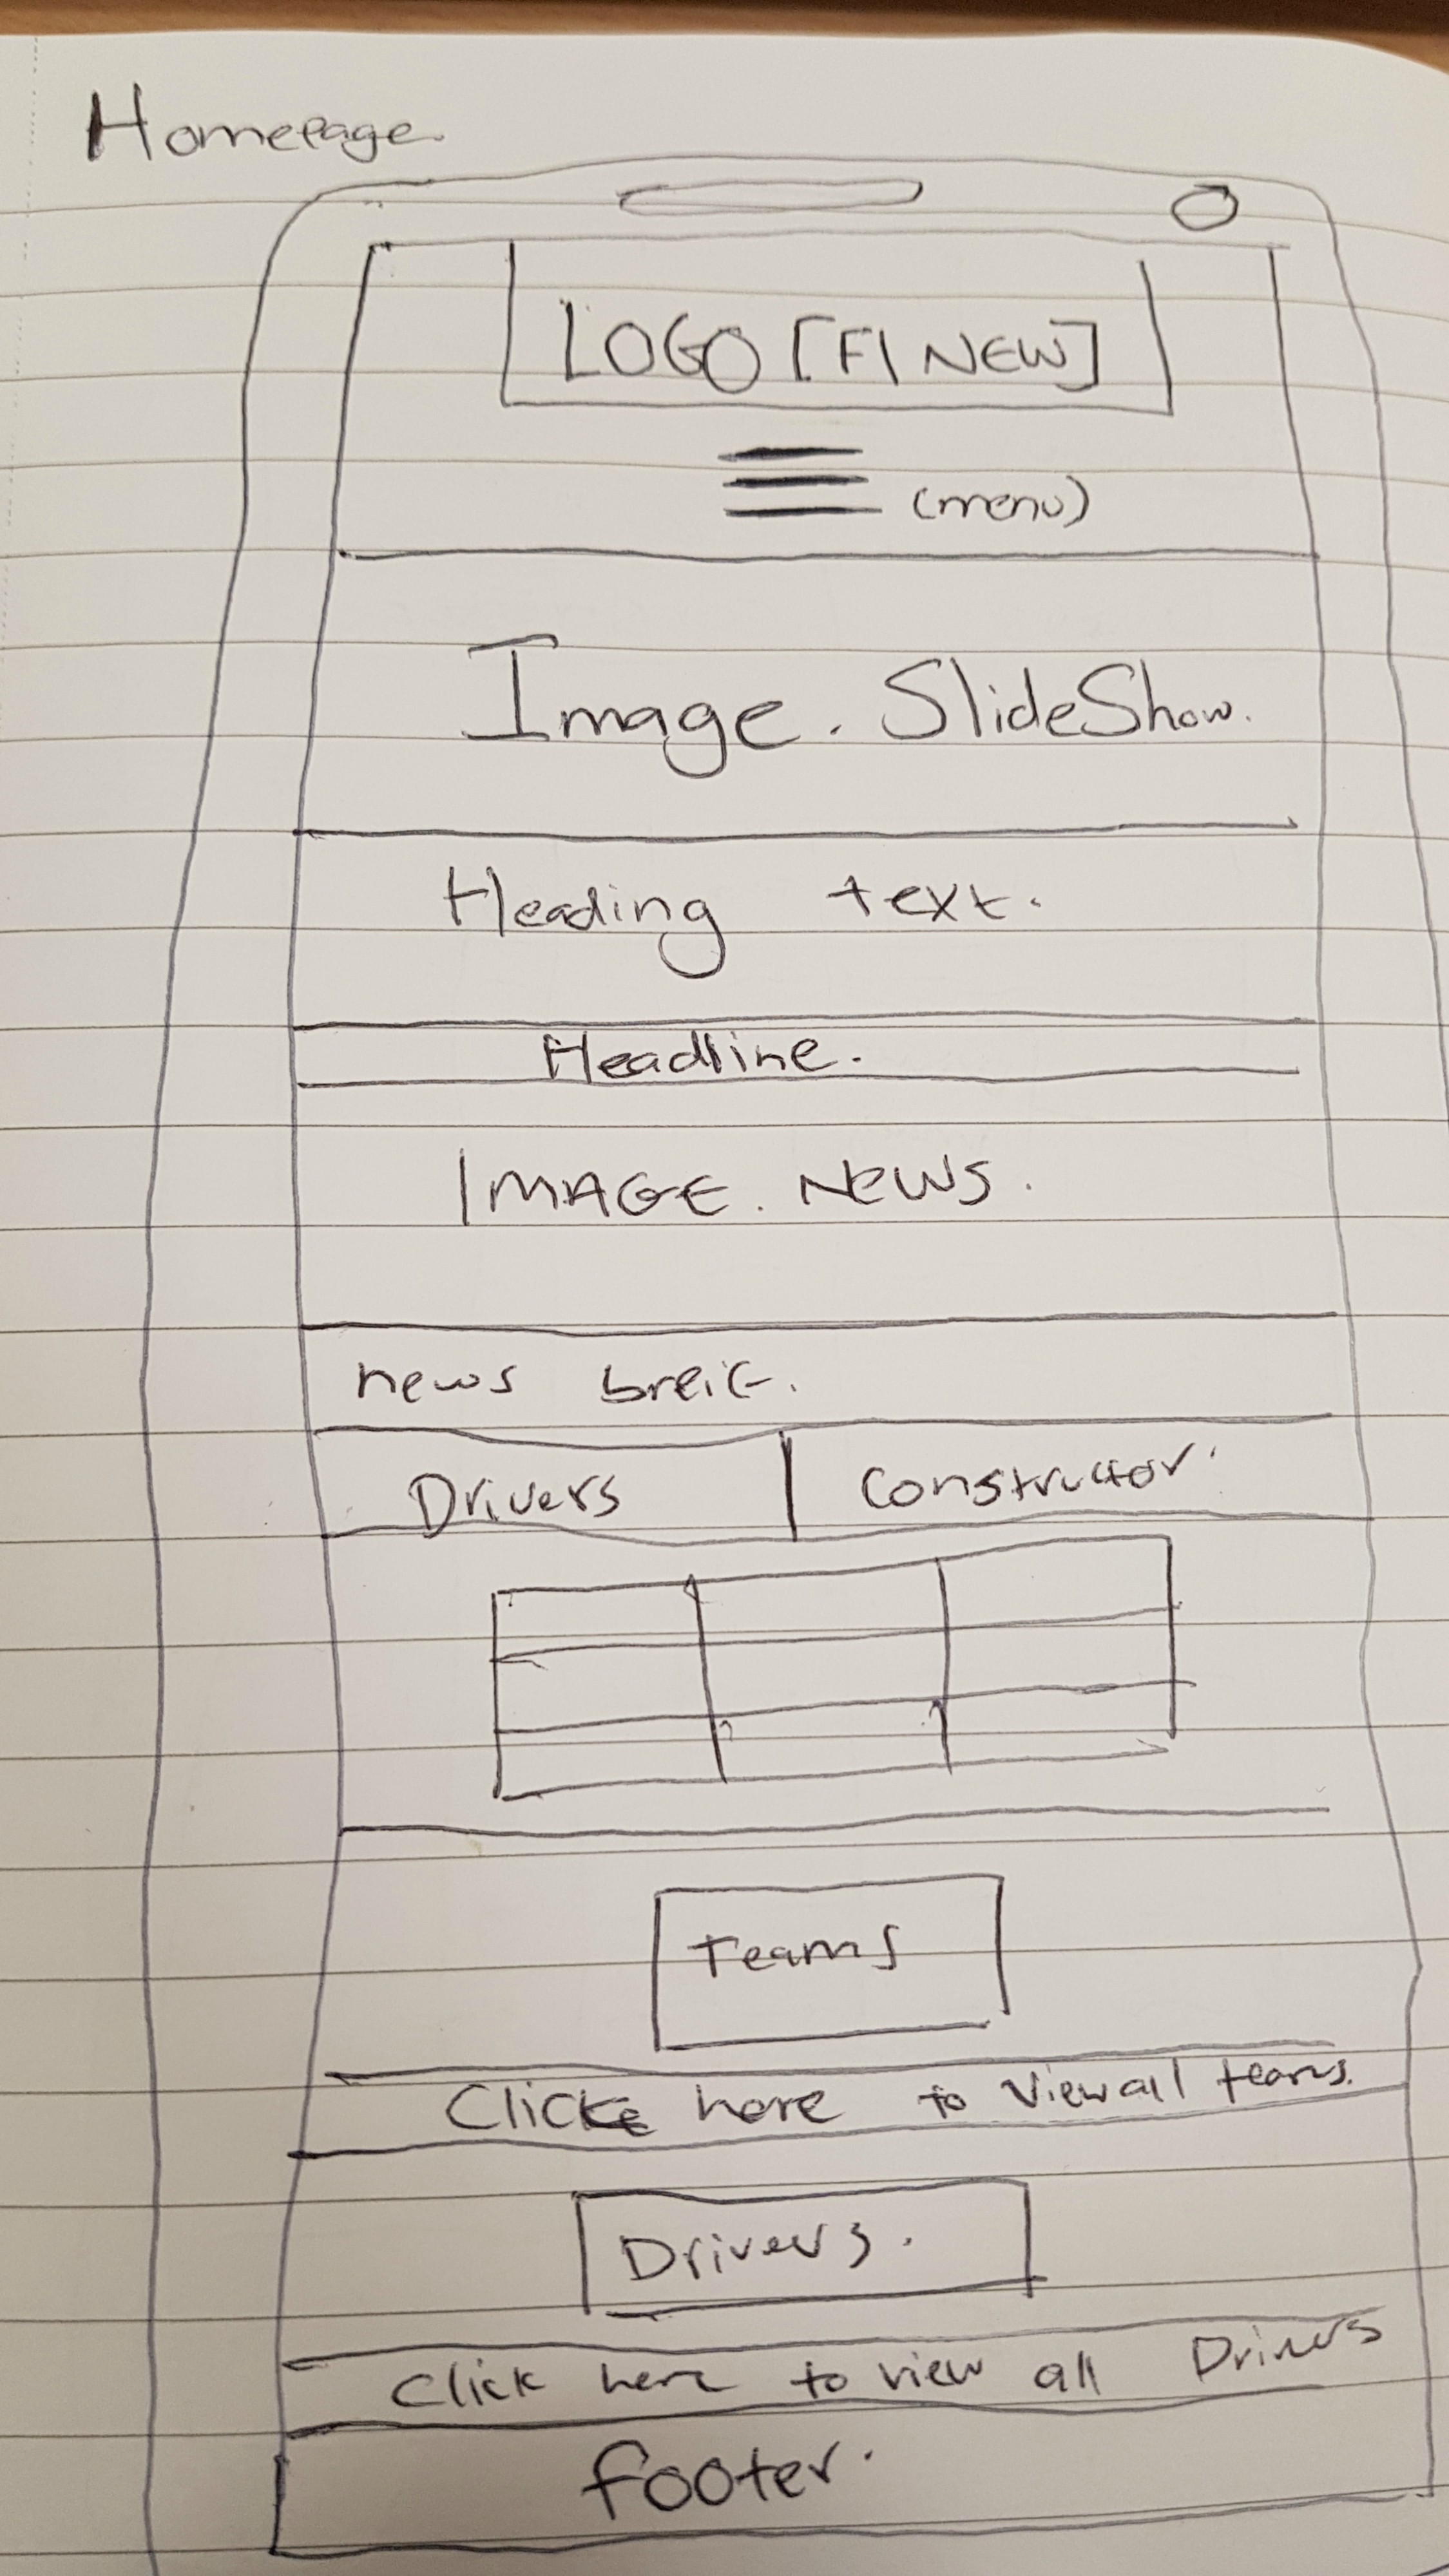 Homepage
LOGO [F1 NEW]
(menu)
Image. SlideShow.
Heading text.
Headline.
IMAGE. NEWS.
news breif.
Drivers | Constructor.
Teams
Click here to View all teams.
Drivers.
Click here to view all Drivers
footer.